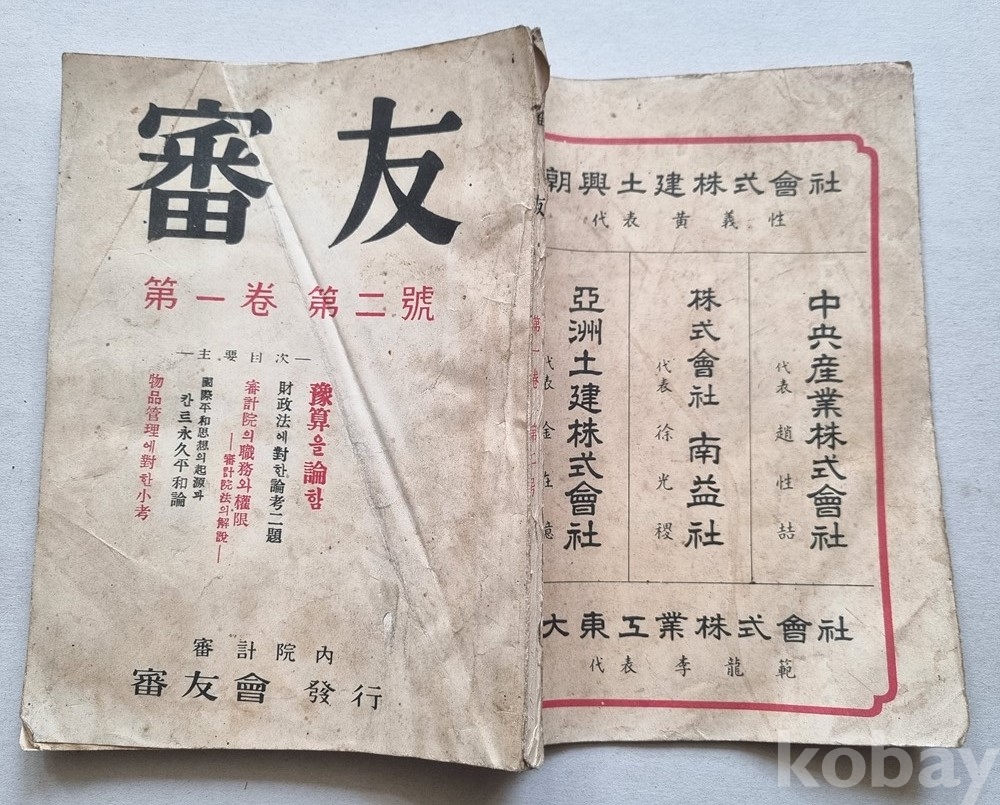 審友
第一卷 第二號
—主要目次—
豫算을論함
財政法에對한論考二題
審計院의職務와權限
—審計院法의解說—
國際平和思想의起源과
칸트永久平和論
物品管理에對한小考
審計院內
審友會 發行
友
第一卷 第二号
朝興土建株式會社
代表 黃義性
中央産業株式會社
代表 趙性喆
株式會社 南益社
代表 徐光稷
亞洲土建株式會社
代表 金在億
大東工業株式會社
代表 李龍範
kobay